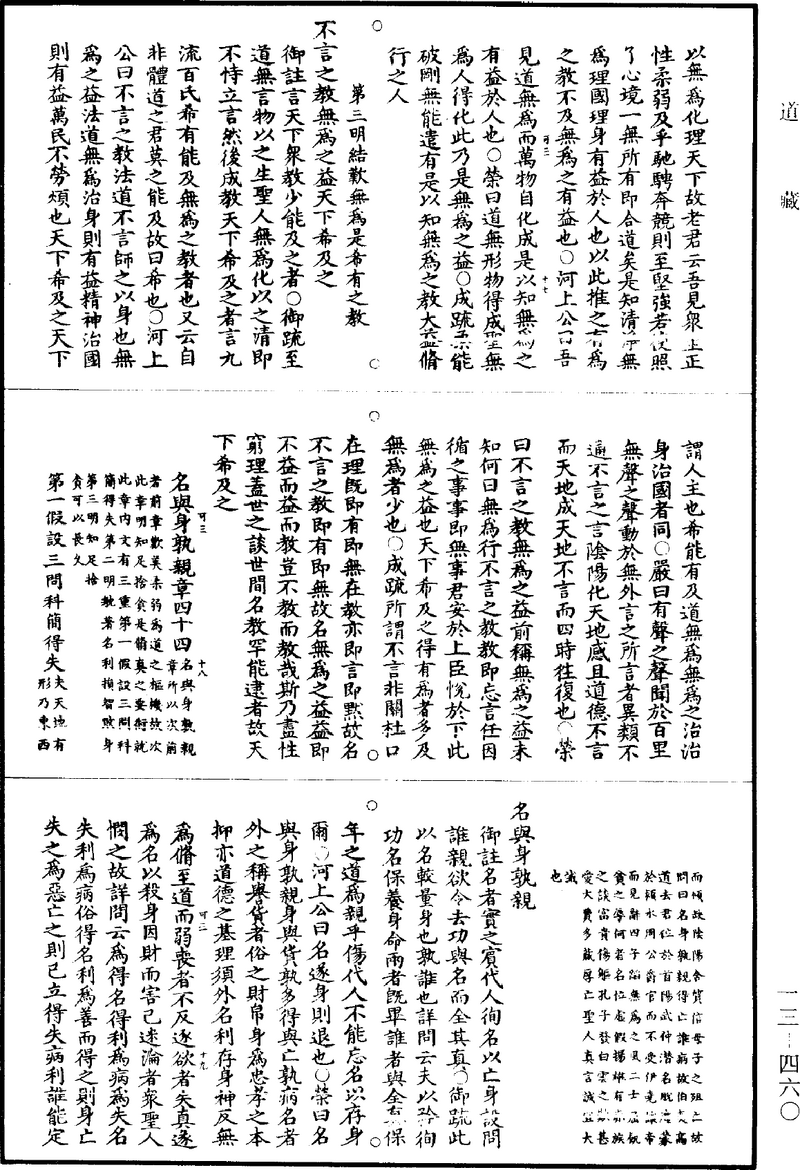 道藏
以無爲化理天下故老君云吾見衆生正
性柔弱及乎馳騁奔競則至堅強若使照
了心境一無所有即合道矣是知清淨無
爲理國理身有益於人也以此推之有爲
之教不及無爲之有益也○河上公曰吾
見道無爲而萬物自化成是以知無爲之
有益於人也○榮曰道無形物得成聖無
爲人得化此乃是無爲之益○成疏柔能
破剛無能遣有是以知無爲之教大益脩
行之人
第三明結歎無爲是希有之教
不言之教無爲之益天下希及之
御註言天下衆教少能及之者○御疏至
道無言物以之生聖人無爲化以之清即
不恃立言然後成教天下希及之者言九
流百氏希有能及無爲之教者也又云自
非體道之君莫之能及故曰希也○河上
公曰不言之教法道不言師之以身也無
爲之益法道無爲治身則有益精神治國
則有益萬民不勞煩也天下希及之天下
謂人主也希能有及道無爲無爲之治治
身治國者同○嚴曰有聲之聲聞於百里
無聲之聲動於無外言之所言者異類不
通不言之言陰陽化天地感且道德不言
而天地成天地不言而四時往復也○榮
曰不言之教無爲之益前稱無爲之益未
知何曰無爲行不言之教教即忘言任因
循之事事即無事君安於上臣悅於下此
無爲之益也天下希及之得有爲者多及
無爲者少也○成疏所謂不言非關杜口
在理既即有即無在教亦即言即默故名
不言之教即有即無故名無爲之益益即
不益而益而教豈不教而教哉斯乃盡性
窮理蓋世之談世間名教罕能逮者故天
下希及之
可三
十八
名與身孰親章四十四
名與身孰親章所以次前
者前章歎美柔弱爲道之樞機故次
此章明知足捨貪是修真之要術就
此章内文有三重第一假設三問科
簡得失第二明躭著名利損智敗身
第三明知足捨
貪可以長久
第一假設三問科簡得失夫天地有
形乃東西
而傾故陰陽含貸信母子之殂亡故
問曰名身孰親得亡誰病故伯夷高
道去君位於首陽武仲潛名脫屣
於潁水周公爵官而不受伊堯讓帝
而見辭四子蹈無爲之風二士屈飢
貪之辱何者名位虛假揚雄有赤族
之談富貴傷軀孔子發白雲之歎甚
愛大費多藏厚亡聖人真言誠宜大
誡
也
名與身孰親
御註名者實之賓代人徇名以亡身設問
誰親欲令去功與名而全其真○御疏此
以名較量身也孰誰也詳問云夫以矜徇
功名保養身命兩者既畢誰者與全身保
年之道爲親乎傷代人不能忘名以存身
爾○河上公曰名遂身則退也○榮曰名
與身孰親身與貨孰多得與亡孰病名者
外之稱譽貨者俗之財帛身爲忠孝之本
抑亦道德之基理須外名利存身神反無
可三
十九
爲脩至道而弱喪者不反逐欲者失真遂
爲名以殺身因財而害己迷淪者衆聖人
憫之故詳問云爲得名得利爲病爲失名
失利爲病俗得名利爲善而得之則身亡
失之爲惡亡之則已立得失病利誰能定
一三—四六〇